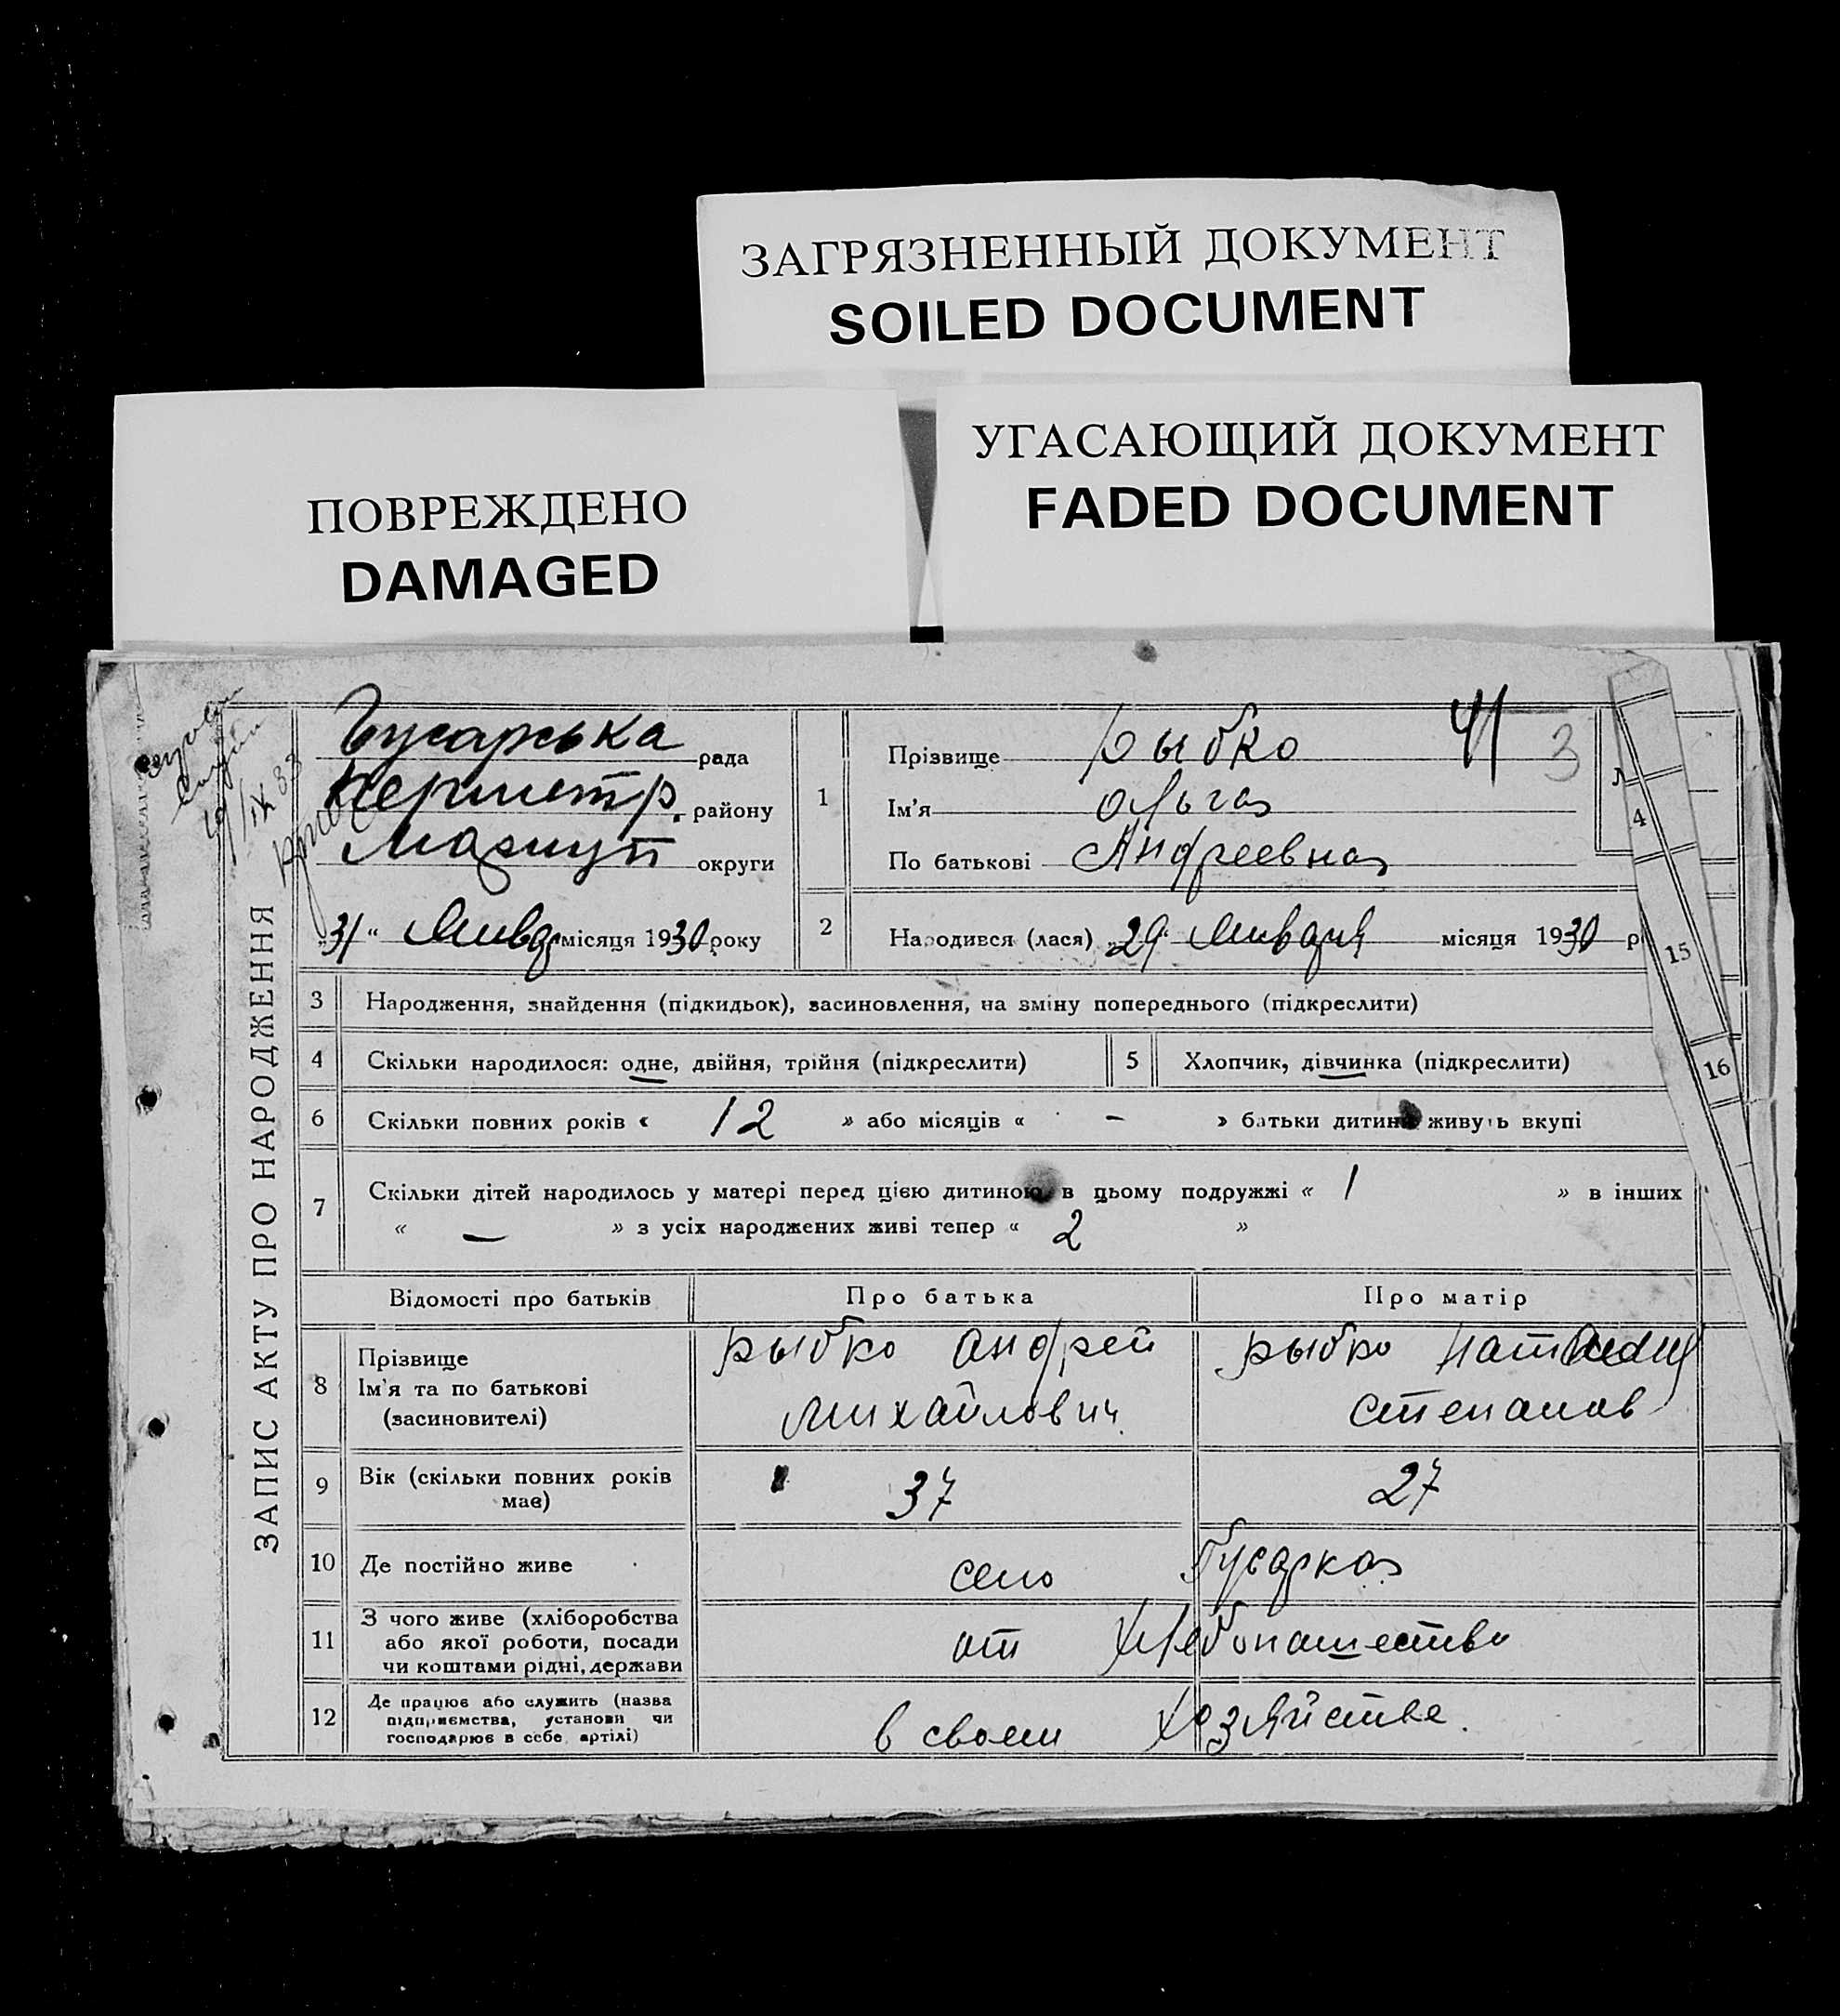 ЗАГРЯЗНЕННЫЙ ДОКУМЕНТ
SOILED DOCUMENT
ПОВРЕЖДЕНО
DAMAGED
УГАСАЮЩИЙ ДОКУМЕНТ
FADED DOCUMENT
ЗАПИС АКТУ ПРО НАРОДЖЕННЯ
Гусарська рада
району
округи
„31“ Январ місяця 1930 року
1
Прізвище Рыбко 41 3
Ім'я Ольга
По батькові Андреевна
2
Народився (лася) „29“ Января місяця 1930 р
3 Народження, знайдення (підкидьок), засиновлення, на зміну попереднього (підкреслити)
4 Скільки народилося: одне, двійня, трійня (підкреслити)
5 Хлопчик, дівчинка (підкреслити)
6 Скільки повних років « 12 » або місяців « – » батьки дитини живуть вкупі
7 Скільки дітей народилось у матері перед цією дитиною в цьому подружжі « 1 » в інших
« — » з усіх народжених живі тепер « 2 »
Відомості про батьків Про батька Про матір
8 Прізвище
Ім'я та по батькові
(засиновителі)
Рыбко Андрей
Михайлович
Рыбко Наталия
Степанов
9 Вік (скільки повних років
має)
37
27
10 Де постійно живе село Гусарка
11 З чого живе (хліборобства
або якої роботи, посади
чи коштами рідні, держави
от хлебопашества
12 Де працює або служить (назва
підприємства, установи чи
господарює в себе артілі)
в своем хозяйстве.
Л
4
15
16